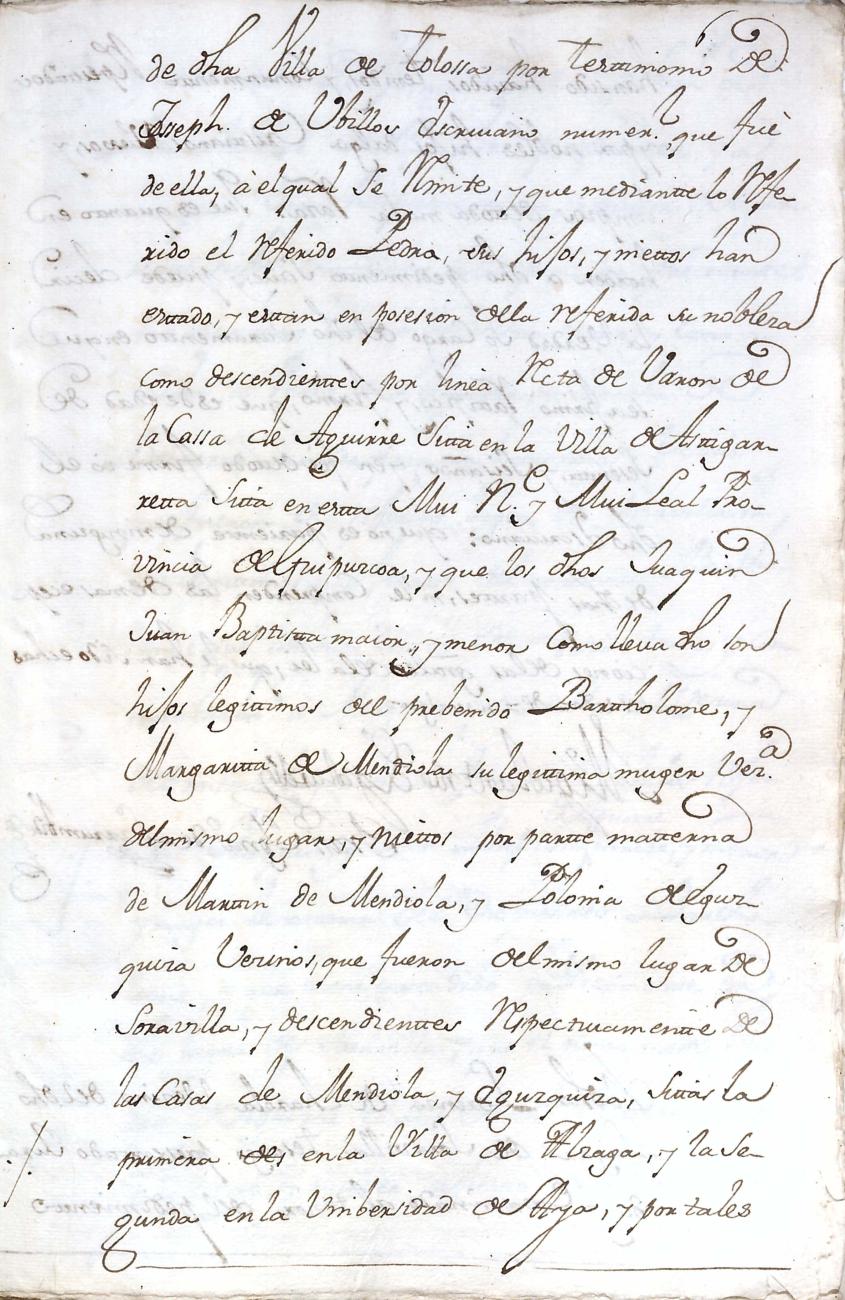 6
de dha Villa de Tolossa por Testtimonio de
Joseph. de Ubillos Escriuano numer.l que fuè
de ella, à el qual se Rmite, y que mediantte lo Refe-
rido el Referido Pedro, sus hijos, y niettos han
esttado, y esttan en posesion de la Referida su nobleza
como descendienttes por linea Recta de Varon de
la Cassa de Aguirre sitta en la Villa de Asttigar-
retta sitta en estta Mui N.e y Mui Leal Pro-
vincia de Guipuzcoa, y que los dhos Juaquin
Juan Baptistta maior, y menor como lleva dho son
hijos legittimos del prebenido Barttholome, y
Margaritta de Mendiola su legittima muger Vez.a
del mismo lugar, y Niettos por partte matterna
de Marttin de Mendiola, y Polonia de Egurz-
quiza Vezinos, que fueron del mismo lugar de
Soravilla, y descendienttes Respectivamentte de
las Casas de Mendiola, y Egurzquiza, sittas la
primera en la Villa de Alzaga, y la se-
gunda en la Unibersidad de Aya, y por tales